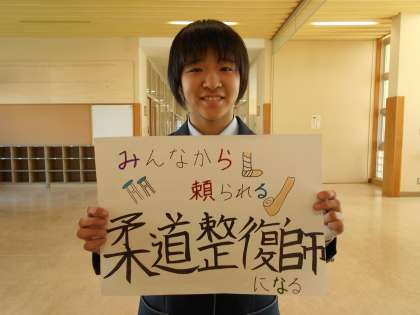 みんなから
頼られる
柔道整復師
になる